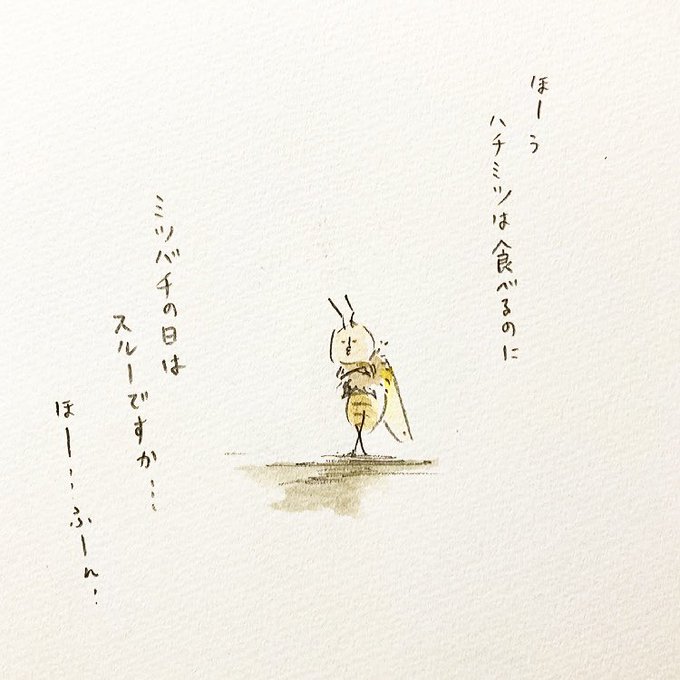 ほーう
ハチミツは食べるのに
ミツバチの日は
スルーですか…
ほー…ふーん…